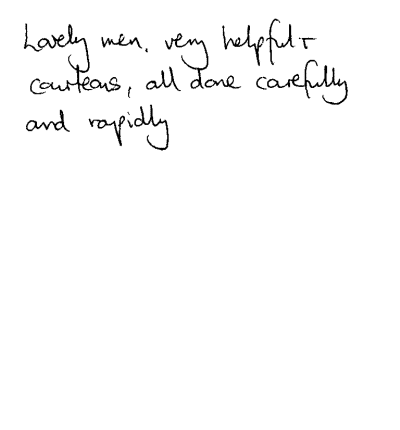 Lovely men, very helpful +
courteous, all done carefully
and rapidly